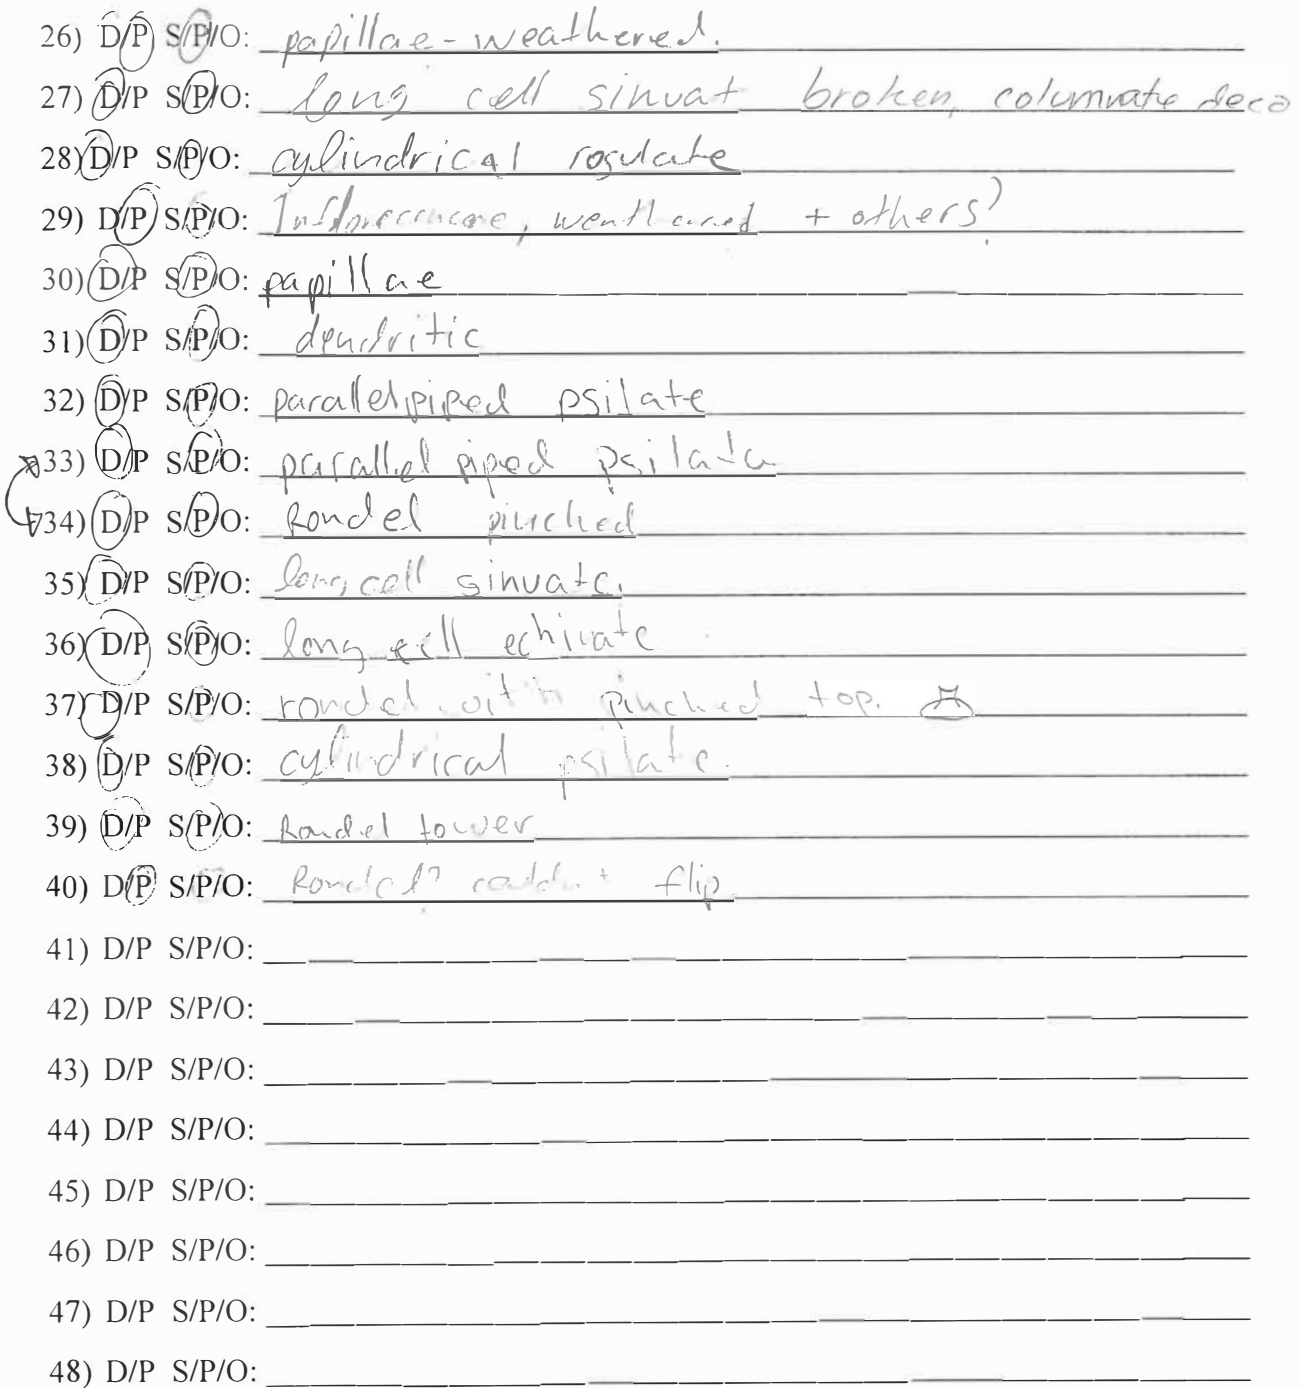 26) D/P S/P/O: papillae - weathered.
27) D/P S/P/O: long cell sinuat broken, columnate deco
28) D/P S/P/O: cylindrical rogulate
29) D/P S/P/O: Inflorescence, weathered + others?
30) D/P S/P/O: papillae
31) D/P S/P/O: dendritic
32) D/P S/P/O: parallelpiped psilate
33) D/P S/P/O: parallel piped psilate
34) D/P S/P/O: Rondel pinched
35) D/P S/P/O: long cell sinuate.
36) D/P S/P/O: long cell echinate
37) D/P S/P/O: rondel with pinched top.
38) D/P S/P/O: cylindrical psilate.
39) D/P S/P/O: Rondel tower
40) D/P S/P/O: Rondel? couldn't flip
41) D/P S/P/O:
42) D/P S/P/O:
43) D/P S/P/O:
44) D/P S/P/O:
45) D/P S/P/O:
46) D/P S/P/O:
47) D/P S/P/O:
48) D/P S/P/O: